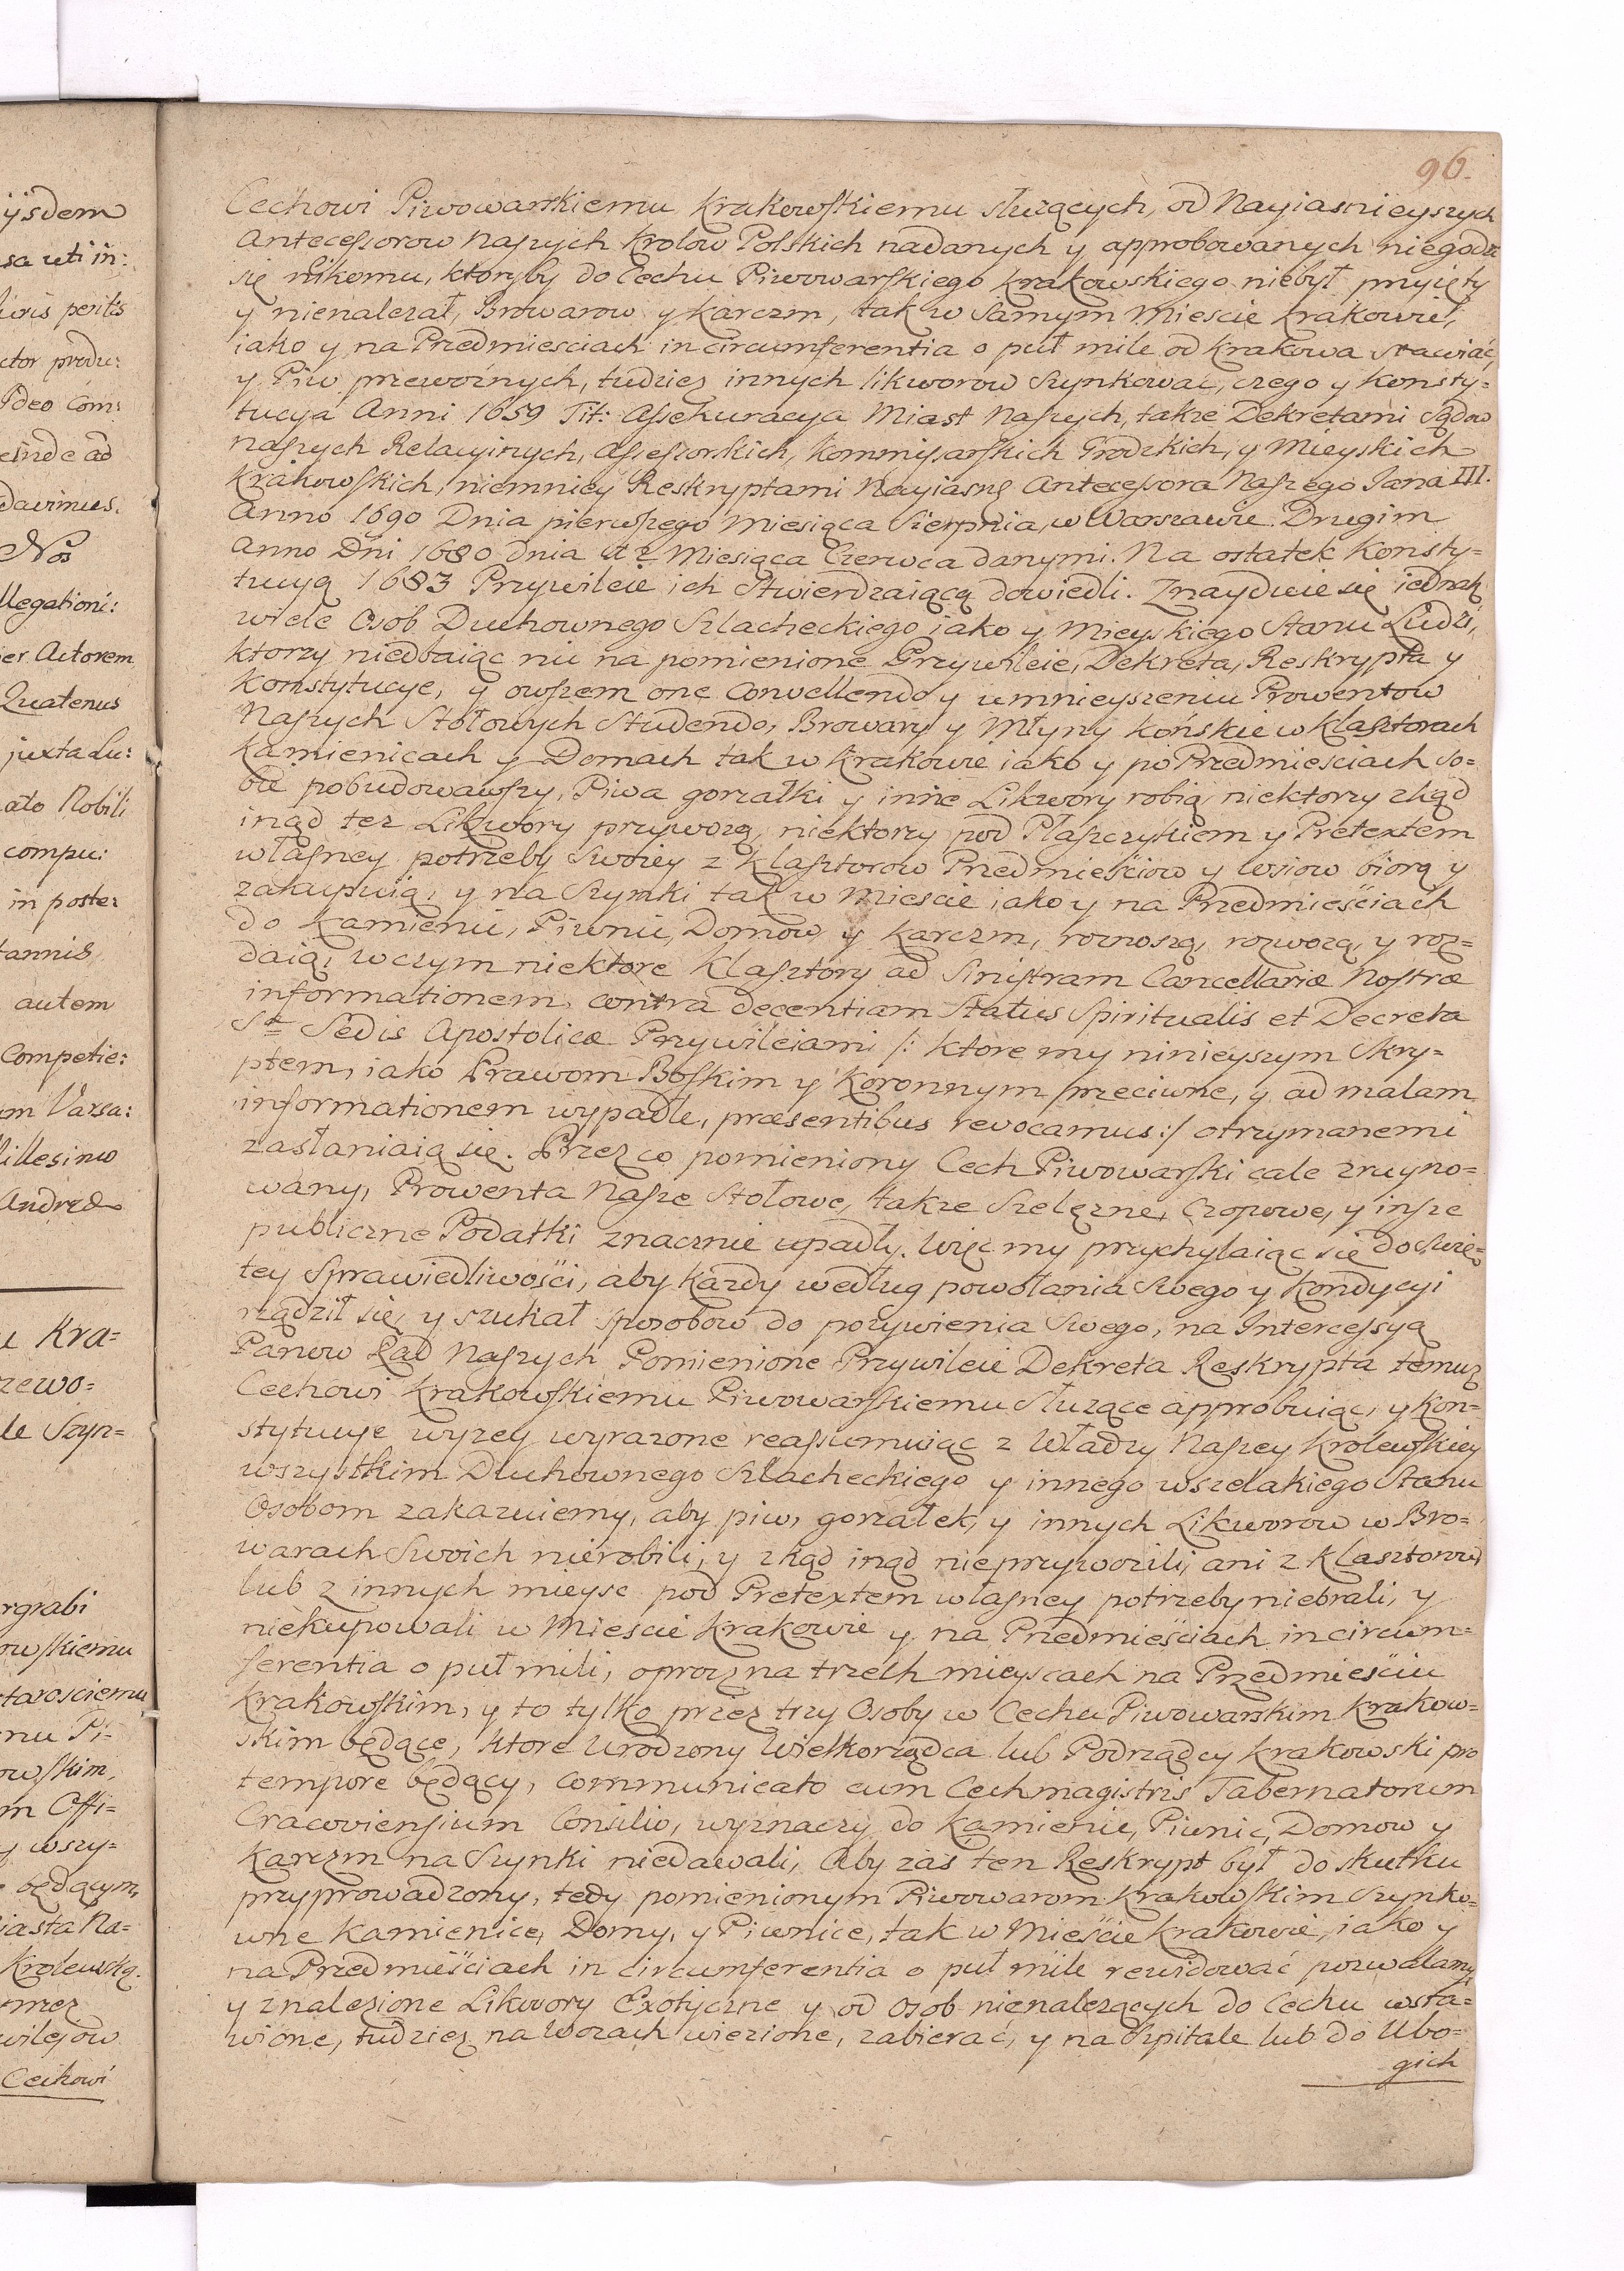 96.
Cechowi Piwowarskiemu Krakowskiemu służących, od Nayiasnieyszych
Antecessorow Naszych Krolow Polskich nadanych y approbowanych niegodzi
się nikomu, ktoryby do Cechu Piwowarskiego Krakowskiego niebył przyięty
y nienalezał, Browarow y Karczm, tak w Samym Miescie Krakowie,
iako y na Przedmiesciach in circumferentia o puł mile od Krakowa stawiać,
y Piw przewoźnych, tudziesz innych likworow Szynkować, czego y Konsty=
tucya Anni 1659 Tit: Assekuracya Miast Naszych, takze Dekretami Sądow
Naszych Relacyinych, Assessorskich, Kommissarskich Grodzkich, y Mieyskich
Krakowskich, niemniey Reskryptami Nayiasnę Antecessora Naszego Jana III.
Anno 1690 Dnia pierwszego Miesiąca Sierpnia, w Warszawie. Drugim
Anno Dni 1680 dnia Miesiąca Czerwca danymi. Na ostatek Konsty=
tucyą 1683 Przywileie ich Stwierdzaiącą dowiedli. Znayduie się iednak
wiele Osob Duchownego Szlacheckiego iako y Mieyskiego Stanu Ludzi,
ktorzy niedbaiąc nic na pomienione Przywileie, Dekreta, Reskrypta y
Konstytucye, y owszem one Convellendo y umnieyszeniu Prowentow
Naszych Stołowych Studendo, Browary y Młyny Końskie w Klasztorach
Kamienicach y Domach tak w Krakowie iako y po Przedmiesciach So=
bie pobudowawszy, Piwa gorzałki y inne Likwory robią, niektorzy zkąd
inąd tez Likwory przywozą, niektorzy pod Płaszczykiem y Pretextem
własney potrzeby Swoiey z Klasztorow Przedmieściow y Wsiow biorą y
zakupuią, y na Szynki tak w Mieście iako y na Przedmieściach
do Kamienic, Piwnic, Domow y Karczm, roznoszą, rozwozą, y roz=
daią, w czym niektore Klasztory ad Sinistram Cancellariæ Nostræ
informationem, contra decentiam Status Spiritualis et Decreta
Stæ Sedis Apostolicæ Przywileiami /: ktore my ninieyszym Skry=
ptem, iako Prawom Boskim y Koronnym przeciwne, y ad malam
informationem wypadłe, præsentibus revocamus :/ otrzymanemi
zasłaniaią się. Przez co pomieniony Cech Piwowarski cale zruyno=
wany, Prowenta Nasze Stołowe, także Szelęzne, Czopowe, y insze
publiczne Podatki znacznie upadły. Więc my przychylaiąc się do Swię=
tey Sprawiedliwości, aby każdy według powołania Swego y Kondycyi
rządził się, y szukał sposobow do pozywienia Swego, na Intercessyą
Panow Rad Naszych Pomienione Przywileie Dekreta Reskrypta temuz
Cechowi Krakowskiemu Piwowarskiemu Służące approbuiąc, y Kon=
stytucye wyzey wyrazone reassumuiąc z Władzy Naszey Krolewskiey
wszystkim Duchownego Szlacheckiego y innego wszelakiego Stanu
Osobom zakazuiemy, aby piw, gorzałek, y innych Likworow w Bro=
warach Swoich nierobili, y zkąd inąd nieprzywozili, ani z Klasztorow
lub z innych mieysc pod Pretextem własney potrzeby niebrali, y
niekupowali w Miescie Krakowie y na Przedmieściach in circum=
ferentia o puł mili, oprocz na trzech mieyscach na Przedmieściu
Krakowskim, y to tylko przez trzy Osoby w Cechu Piwowarskim Krakow=
skim będące, ktore Urodzony Wielkorządca lub Podrządcy Krakowski pro
tempore będący, communicato cum Cechmagistris Tabernatorum
Cracoviensium Consilio, wyznaczy do Kamienic, Piwnic, Domow y
Karczm na Szynki niedawali, Aby zas ten Reskrypt był do skutku
przyprowadzony, tedy pomienionym Piwowarom Krakowskim Szynko=
wne Kamienice, Domy, y Piwnice, tak w Mieście Krakowie, iako y
na Przedmieściach in circumferentia o puł mile rewidować pozwalamy,
y znalezione Likwory Exotyczne y od Osob nienalezących do Cechu wsta=
wione, tudziesz na Wozach wiezione, zabierać, y na Szpitale lub do Ubo=
gich